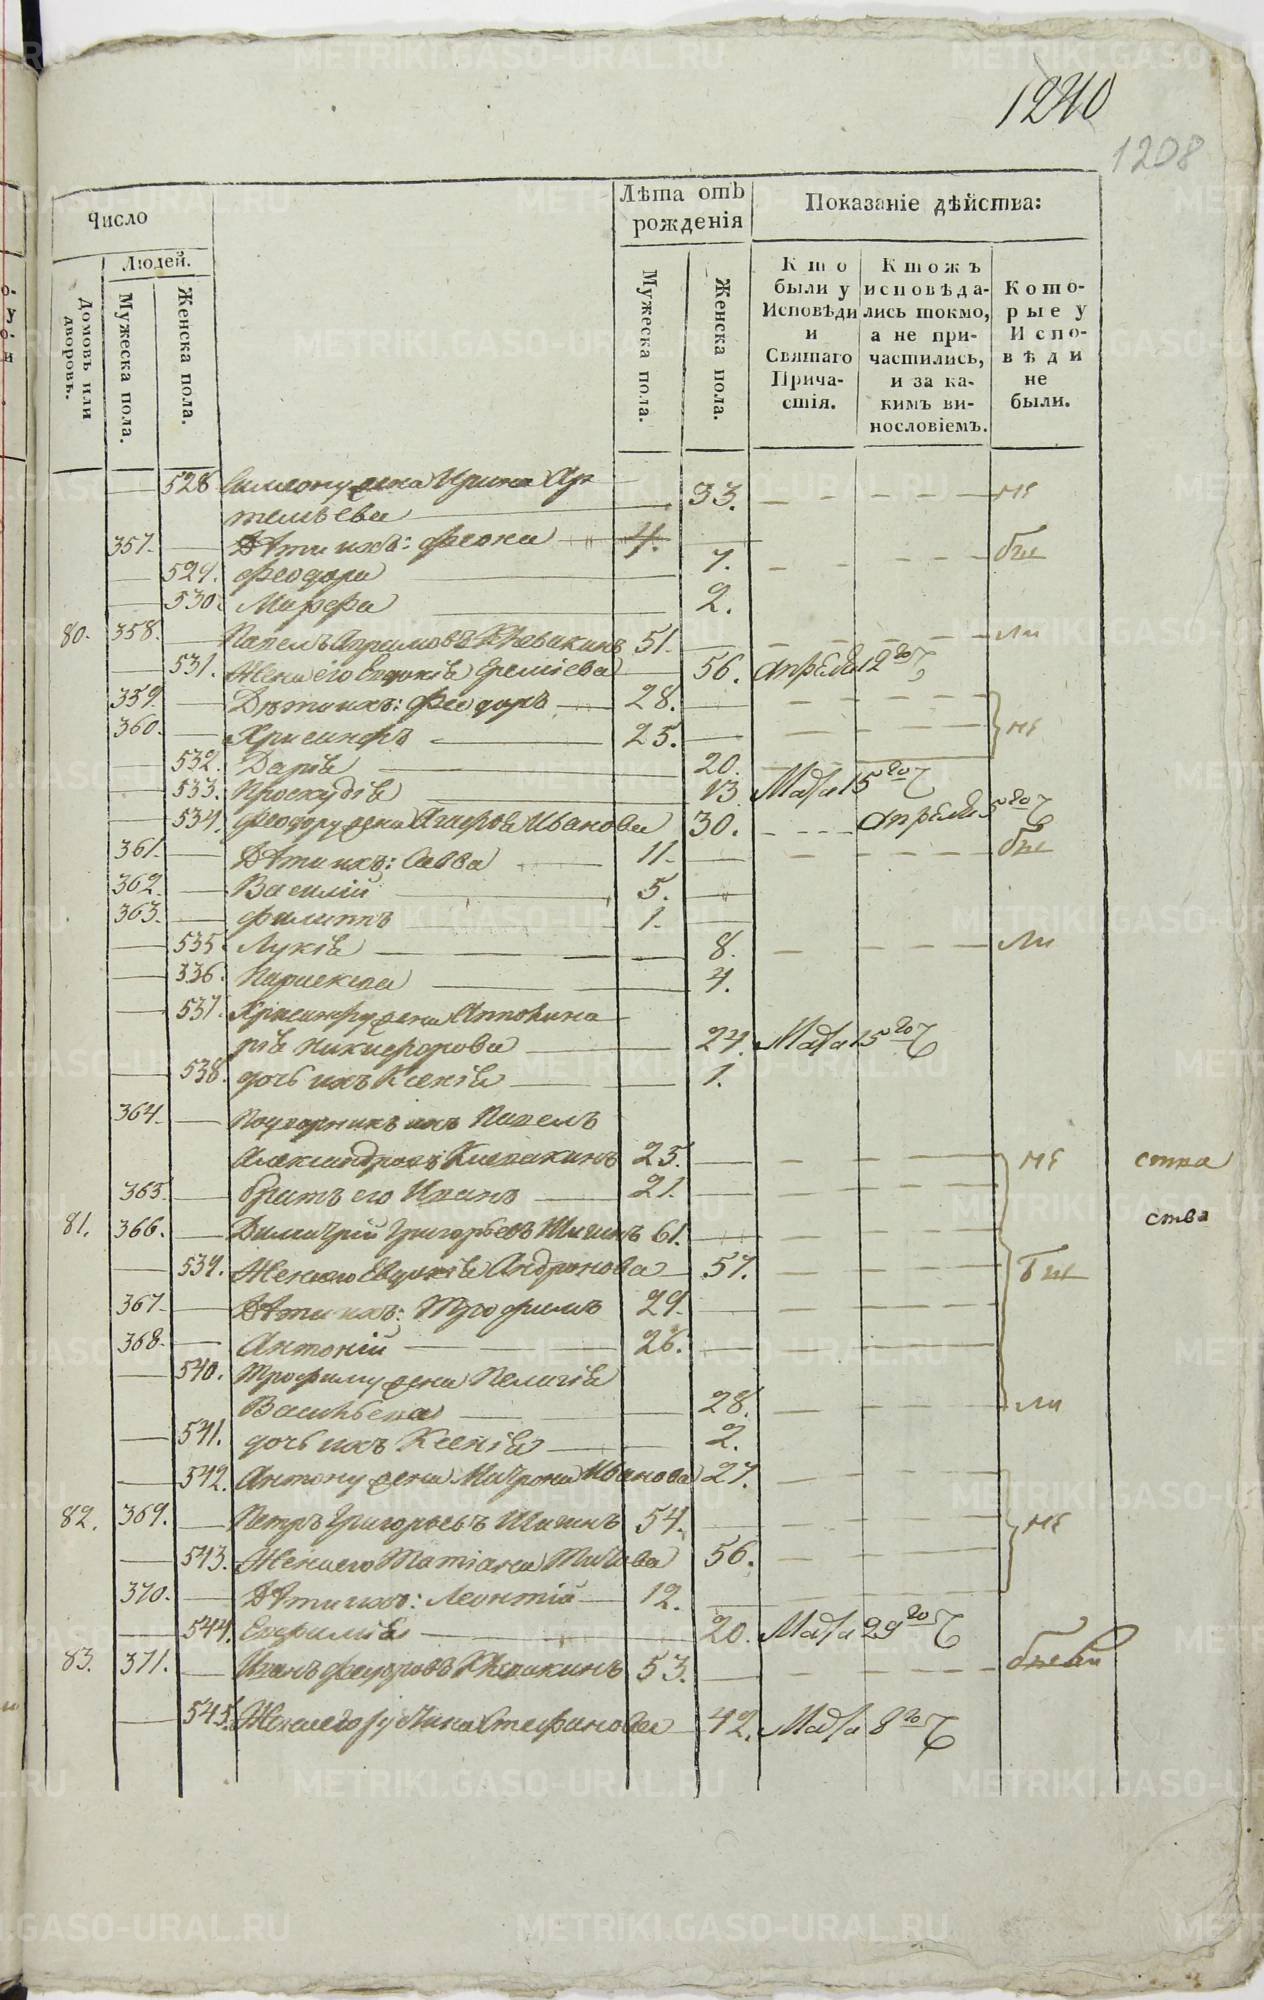 METRIKI.GASO-URAL.RU
1240
1208
Число
Людей.
Домовъ или дворовъ.
Мужеска пола.
Женска пола.
Лѣта отъ рожденія
Мужеска пола.
Женска пола.
Показаніе дѣйства:
Кто были у Исповѣди и Святаго Причастія.
Ктожъ исповѣдались токмо, а не причастились, и за какимъ винословіемъ.
Которые у Исповѣди не были.
528 Симеону жена Ирина Ар 33. не
темьева
357. Дѣти ихъ: Феона 4. бы
529. Феодора 7.
530. Марфа 2.
80. 358. Павелъ 51. ли
531. Жена его Евдокія Еремѣева 56. Апрѣля 12
359. Дѣти ихъ: Феодоръ 28.
360. Хрисанфъ 25. не
532. Дарія 20.
533. Проскудія 13 Маїя 15
534. Феодору жена Агафія Иванова 30. Апрѣля 5
361. Дѣти ихъ: Савва 11. бы
362. Василій 5.
363. Филиппъ 1.
535 Лукія 8. ли
336. Параскева 4.
537. Хрисанфу жена Аполина
рія Никифорова 24. Маїя 15
538. дочь ихъ Ксенія 1.
364. Подворникъ ихъ Павелъ
Александровъ Клевакинъ 23. не стра
365. братъ его Иванъ 21.
81. 366. Димитрій Григорьевъ Шишинъ 61. ства
539. Жена его Евдокія Андронова 57. бы
367. Дѣти ихъ: Трофимъ 29.
368. Антоній 26.
540. Трофиму жена Пелагія
Васильева 28. ли
541. дочь ихъ Ксенія 2.
542. Антону жена Матрона Иванова 27.
82. 369. Петръ Григорьевъ Шишинъ 54. не
543. Жена его Татіана Титова 56.
370. Дѣти ихъ: Леонтій 12.
544. Евфимія 20. Маїя 29
83. 371. Иванъ Федоровъ Клевакинъ 53.
545. Жена его Стефанова 42. Маїя 8